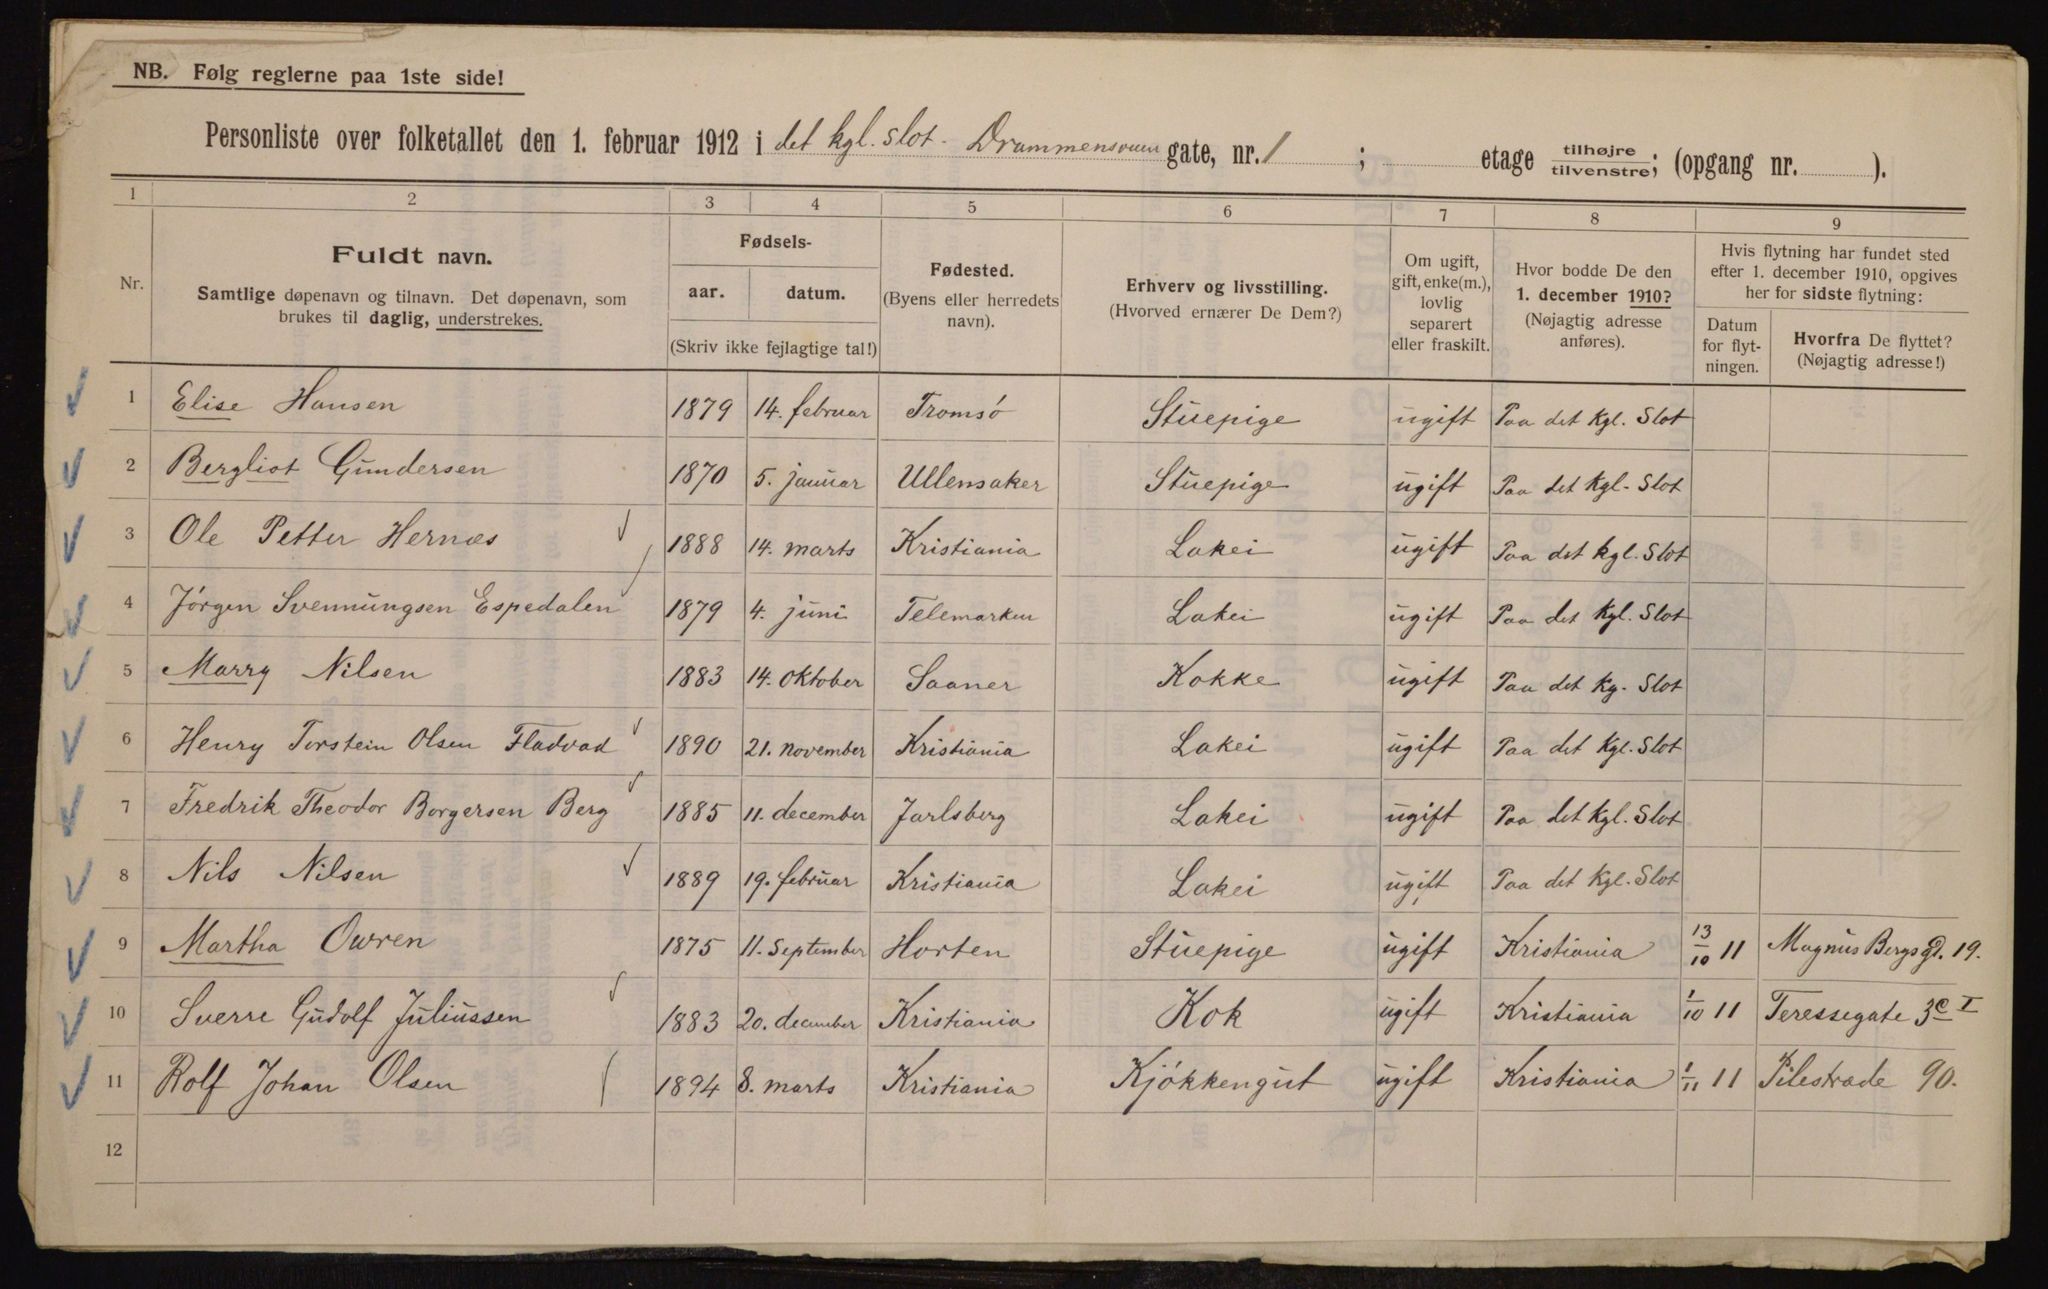 NB. Følg reglerne paa 1ste side!
Personliste over folketallet den 1. februar 1912 i det kgl. slot. Drammensveien gate, nr. 1 ; etage tilhøjre/tilvenstre; (opgang nr. ).
1 2 3 4 5 6 7 8 9
Nr.
Fuldt navn.
Samtlige døpenavn og tilnavn. Det døpenavn, som
brukes til daglig, understrekes.
Fødsels-
aar. datum.
(Skriv ikke fejlagtige tal!)
Fødested.
(Byens eller herredets
navn).
Erhverv og livsstilling.
(Hvorved ernærer De Dem?)
Om ugift,
gift, enke(m.),
lovlig
separert
eller fraskilt.
Hvor bodde De den
1. december 1910?
(Nøjagtig adresse
anføres).
Hvis flytning har fundet sted
efter 1. december 1910, opgives
her for sidste flytning:
Datum
for flyt-
ningen.
Hvorfra De flyttet?
(Nøjagtig adresse!)
1 Elise Hansen 1879 14. februar Tromsø Stuepige ugift Paa det Kgl. Slot
2 Bergliot Gundersen 1870 5. januar Ullensaker Stuepige ugift Paa det Kgl. Slot
3 Ole Petter Hernæs 1888 14. marts Kristiania Lakei ugift Paa det kgl. Slot
4 Jörgen Svennungsen Espedalen 1879 4. juni Telemarken Lakei ugift Paa det Kgl. Slot
5 Marry Nilsen 1883 14. oktober Saaner Kokke ugift Paa det Kg. Slot
6 Henry Torstein Olsen Fladvad 1890 21. november Kristiania Lakei ugift Paa det Kgl. Slot
7 Fredrik Theodor Borgersen Berg 1885 11. december Jarlsberg Lakei ugift Paa det Kgl. Slot
8 Nils Nilsen 1889 19. februar Kristiania Lakei ugift Paa det Kgl. Slot
9 Martha Owren 1875 11. September Horten Stuepige ugift Kristiania 13/10 11 Magnus Bergs gd. 19.
10 Sverre Gudolf Juliussen 1883 20. december Kristiania Kok ugift Kristiania 1/10 11 Teressegate 3c I
11 Rolf Johan Olsen 1894 8. marts Kristiania Kjøkkengut ugift Kristiania 1/11 11 Pilestræde 90.
12